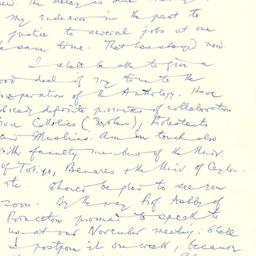 my endeavor in the past to
justice to several jobs at one
same time. That has changed now.
I shall be able to give a
good deal of my time to the
preparation of the Anthology. Have
already definite promises of collaboration
from Catholics, Protestants
and Muslims. Am in touch also
with faculty members of the Univ.
of Tokyo, Benares & the Univ. of Ceylon
etc. Should be glad to see you
soon. By the way Prof Ashby of
Princeton promised to speak to
us at our November meeting. Shall
I postpone it one week, because